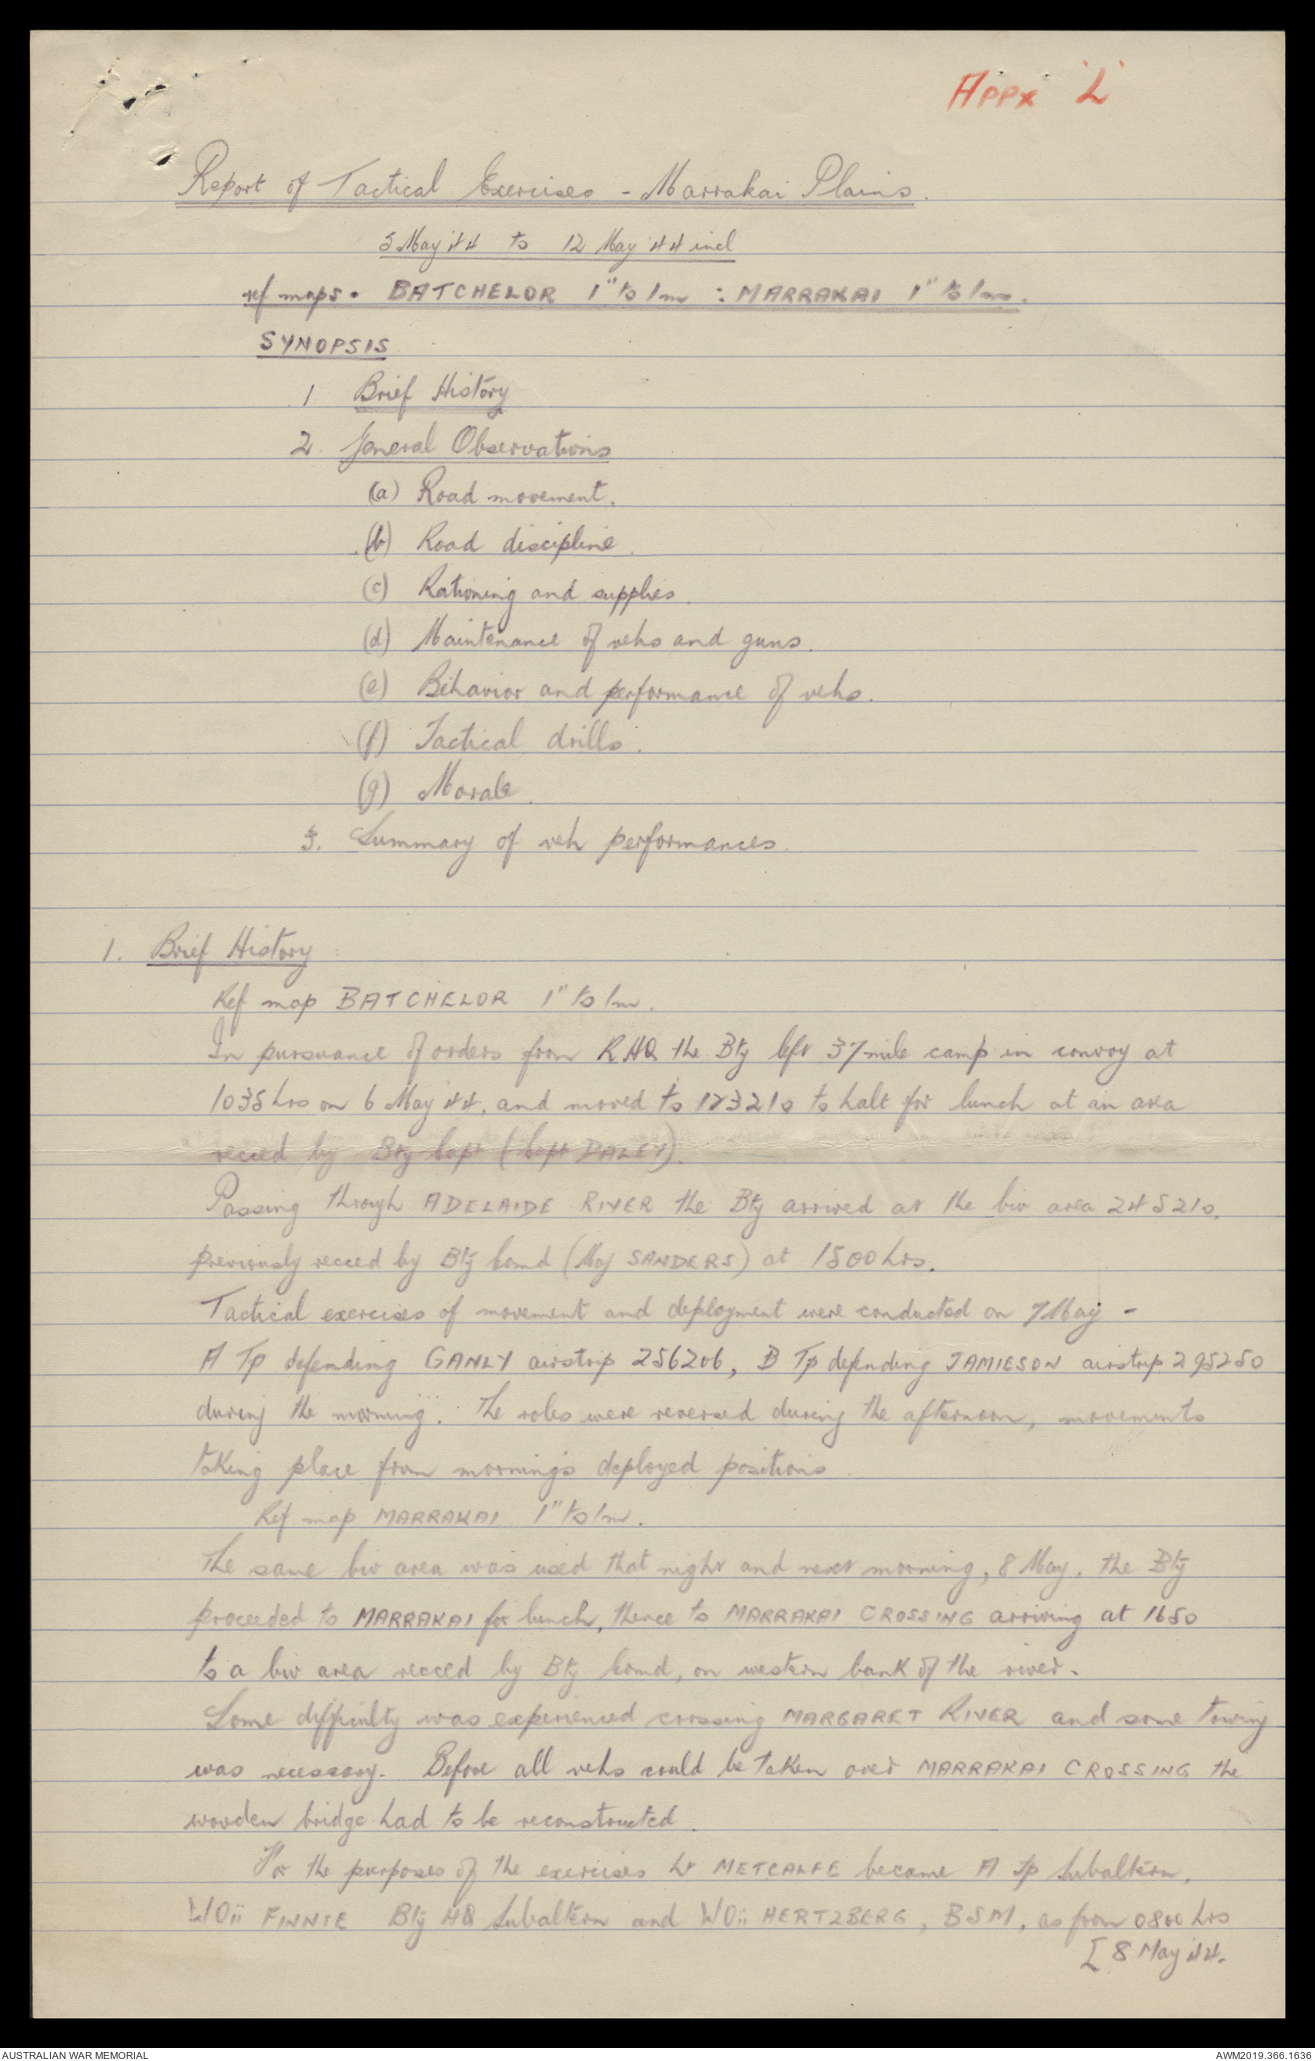 Appx 'L'
Report of Tactical Exercises - Marrakai Plains.
5 May '44 to 12 May '44 incl
ref maps. BATCHELOR 1" to 1m : MARRAKAI 1" to 1m.
SYNOPSIS
1 Brief History
2. General Observations
(a) Road movement.
(b) Road discipline.
(c) Rationing and supplies.
(d) Maintenance of vehs and guns.
(e) Behavior and performance of vehs.
(f) Tactical drills.
(g) Morale.
3. Summary of veh performances.
1. Brief History
Ref map BATCHELOR 1" to 1m.
In pursuance of orders from RHQ the Bty left 37 mile camp in convoy at
1035 hrs on 6 May 44, and moved to 123210 to halt for lunch at an area
recced by Bty Capt (Capt DALEY).
Passing through ADELAIDE RIVER the Bty arrived at the biv area 245210.
previously recced by Bty Comd (Maj SANDERS) at 1500 hrs.
Tactical exercises of movement and deployment were conducted on 7 May -
A Tp defending GANLY airstrip 256206, B Tp defending JAMIESON airstrip 295250
during the morning. The roles were reversed during the afternoon, movements
taking place from morning's deployed positions
Ref map MARRAKAI 1" to 1m.
The same biv area was used that night and next morning, 8 May, the Bty
proceeded to MARRAKAI for lunch, thence to MARRAKAI CROSSING arriving at 1650
to a biv area recced by Bty Comd, on western bank of the river.
Some difficulty was experienced crossing MARGARET RIVER and some towing
was necessary. Before all vehs could be taken over MARRAKAI CROSSING the
wooden bridge had to be reconstructed.
For the purposes of the exercises Lt METCALFE became A Tp Subaltern,
WOii FINNIE Bty HQ Subaltern and WOii HERTZBERG, BSM, as from 0800 hrs
[8 May '44.
AUSTRALIAN WAR MEMORIAL
AWM2019.366.1636